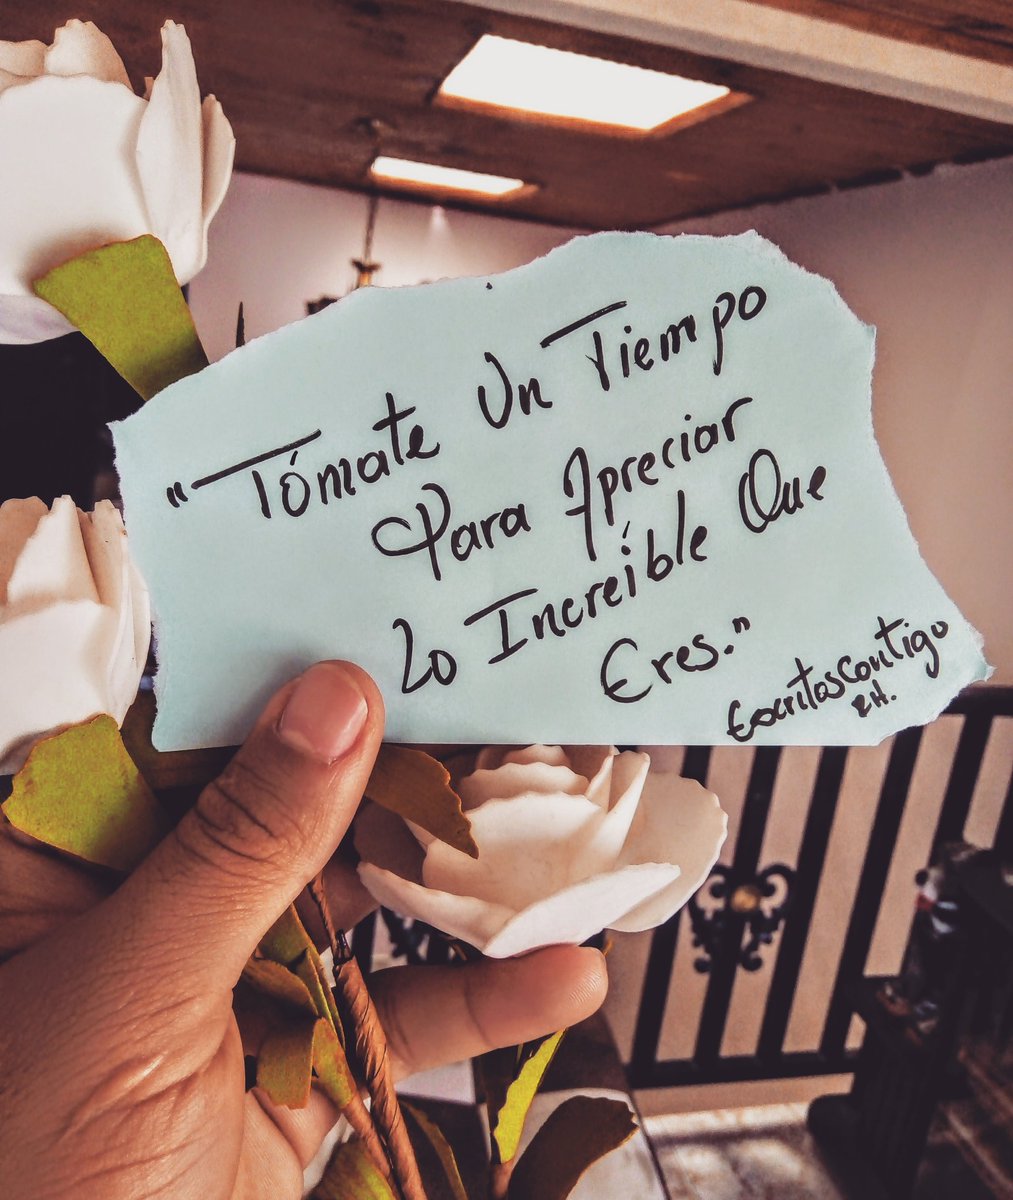 "Tómate Un Tiempo
Para Apreciar
Lo Increíble Que
Eres."
EscritosContigo
ZH.